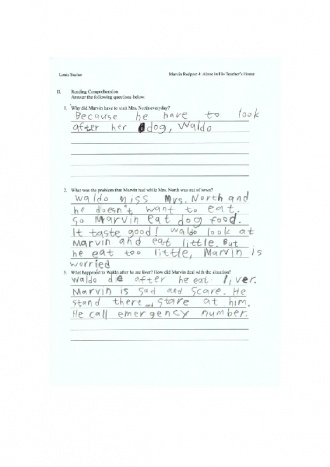 Louis Sachar Marvin Redpost 4: Alone in His Teacher's House
II. Reading Comprehension
Answer the following questions below.
1. Why did Marvin have to visit Mrs. North everyday?
Because he have to look
after her dog, Waldo
2. What was the problem that Marvin had while Mrs. North was out of town?
Waldo miss Mrs. North and
he doesn't want to eat.
So Marvin eat dog food.
It taste good! waldo look at
Marvin and eat little. But
he eat too little, Marvin is
worried
3. What happened to Waldo after he ate liver? How did Marvin deal with the situation?
Waldo die after he eat liver.
Marvin is sad and scare. He
stand there and stare at him.
He call emergency number.